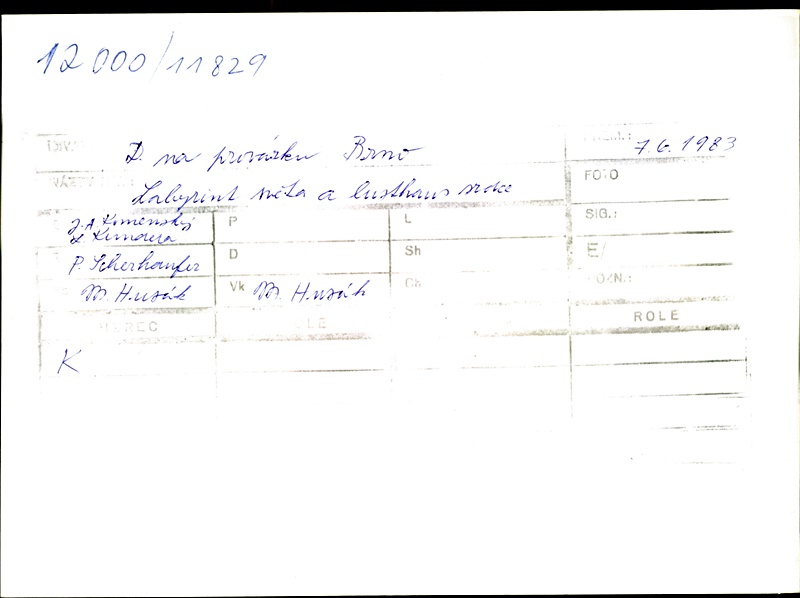 12 000/11829
D. na provázku Brno 7.6. 1983
Labyrint světa a lusthaus srdce FOTO
J. A. Komenský P L SIG.:
L. Kundera
P. Scherhaufer D Sh E/
M. Husák Vk M. Husák Ch POZN.:
HEREC ROLE ROLE
K